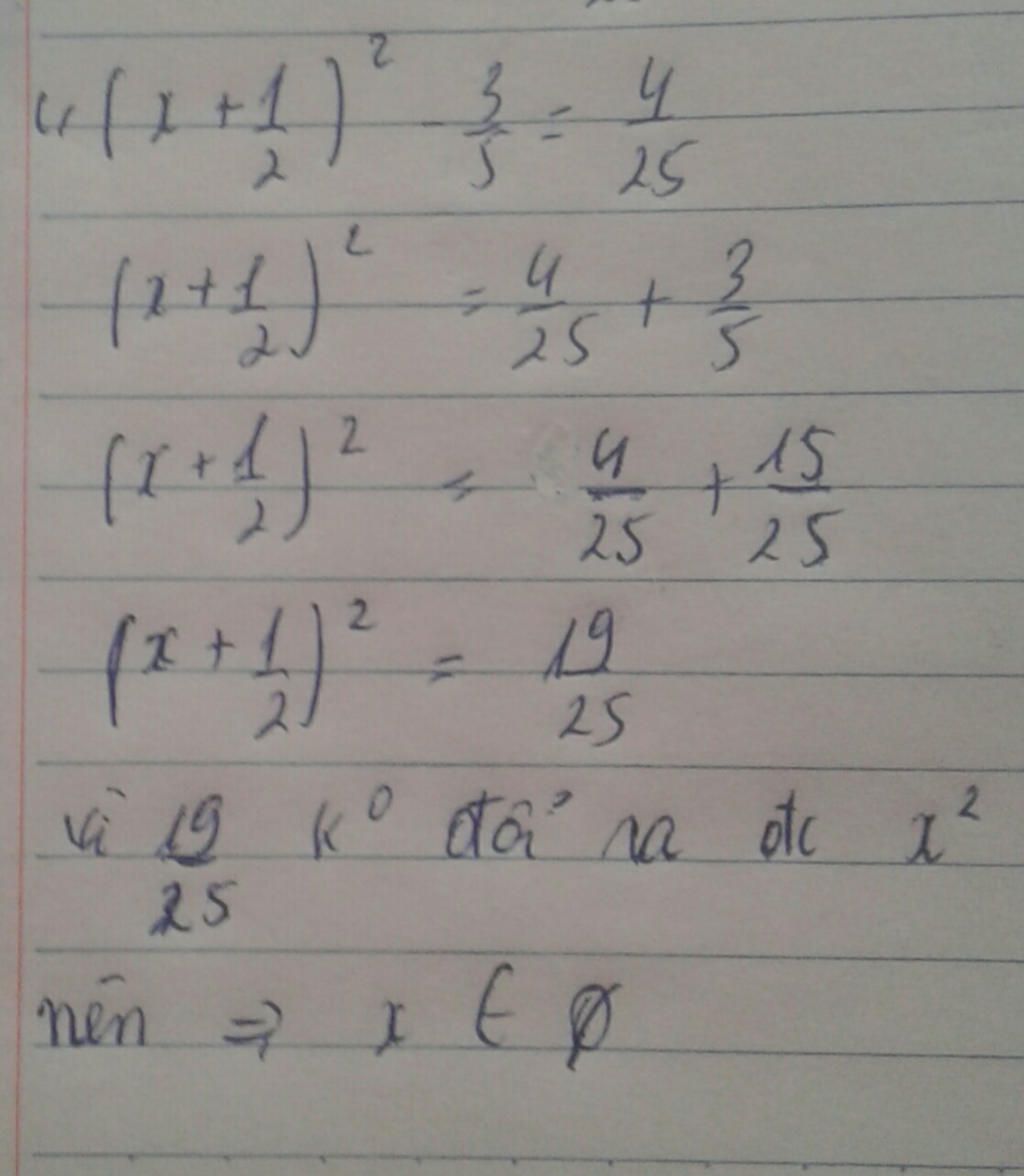 4, (x + 1/2)² - 3/5 = 4/25
(x + 1/2)² = 4/25 + 3/5
(x + 1/2)² = 4/25 + 15/25
(x + 1/2)² = 19/25
vì 19/25 k⁰ đổi ra đc x²
nên ⇒ x ∈ ∅